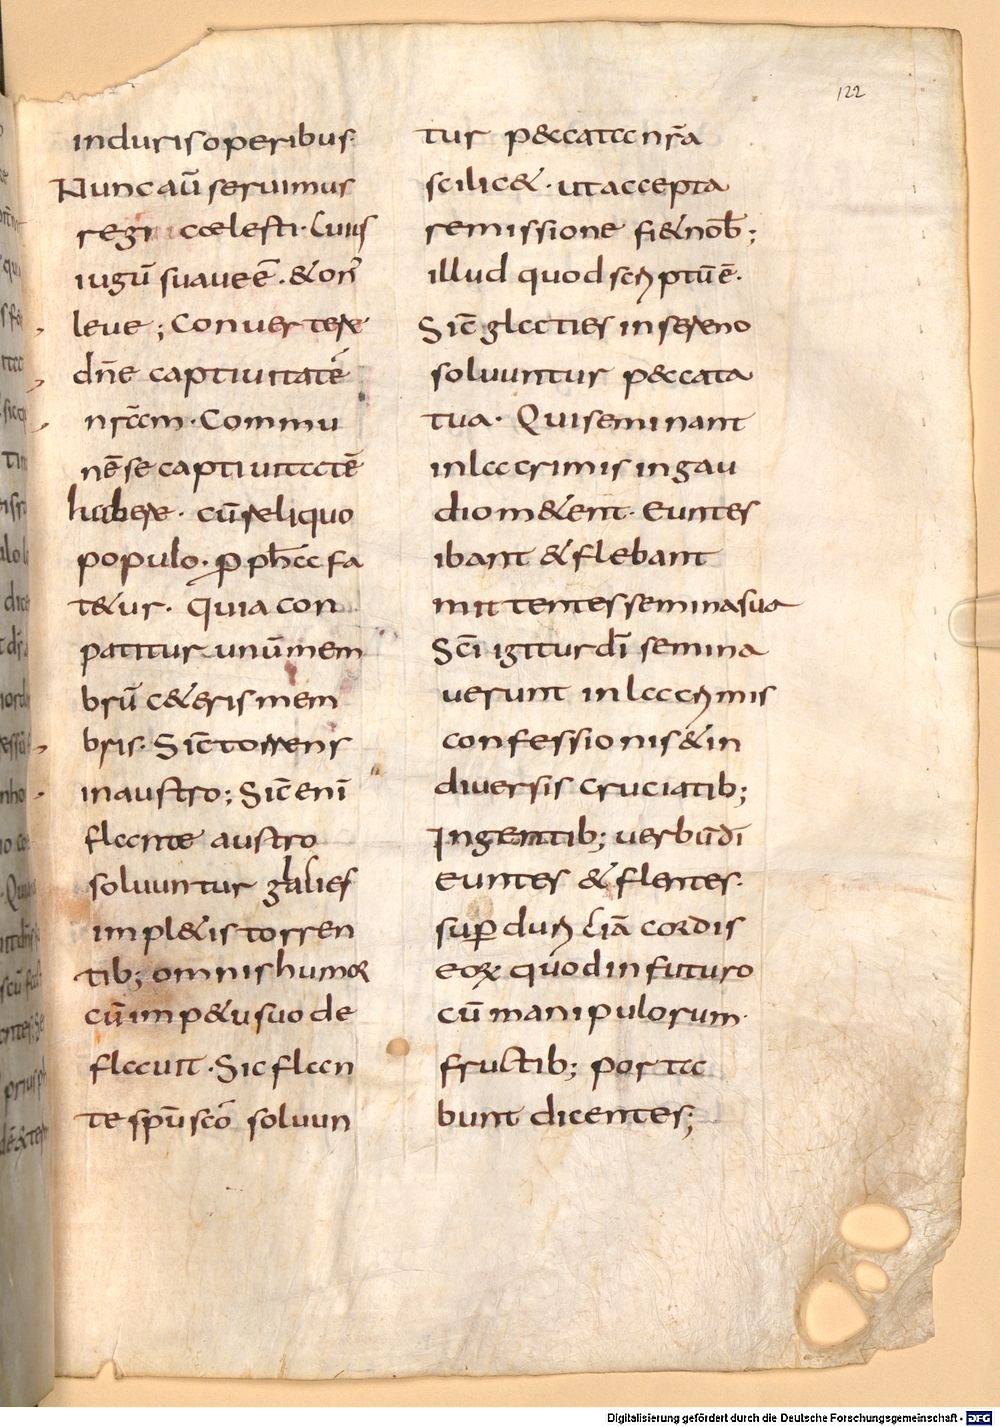 122
induris operibus.
Nunc aū seruimus
regi cœlesti. Cuius
iugū suaue ē. & on᷒
leue; Conuertere
dn̄e captiuitatē
nr̄am. Commu
nē se captiuitatē
habere. cū reliquo
populo. ꝓph̄a fa
t&ur. Quia con
patitur unū mem
brū c&eris mem
bris. Sic̄ torrens
in austro; Sic̄ eni̅
flante austro
soluuntur glalies
impl&is torren
tib; omnis humor
cū imp&u suo de
flauit. Sic flan
te sp̄u sc̄o soluun
tur p&cata nr̄a
scilic&. ut accepta
remissione fi& nob̄;
illud quod scriptū ē.
Sic̄ glaties in sereno
soluuntur p&cata
tua. Qui seminant
in lacrimis in gau
dio m&ent. Euntes
ibant & flebant
mittentes semina sua
Sc̄i igitur dī semina
uerunt in lacrimis
confessionis & in
diuersis cruciatib;
Ingentib; uerbū dī
euntes & flentes.
suꝑ durī t̄iā cordis
eoꝝ quod in futuro
cū manipulorum.
fructib; porta
bunt dicentes;
Digitalisierung gefördert durch die Deutsche Forschungsgemeinschaft - DFG